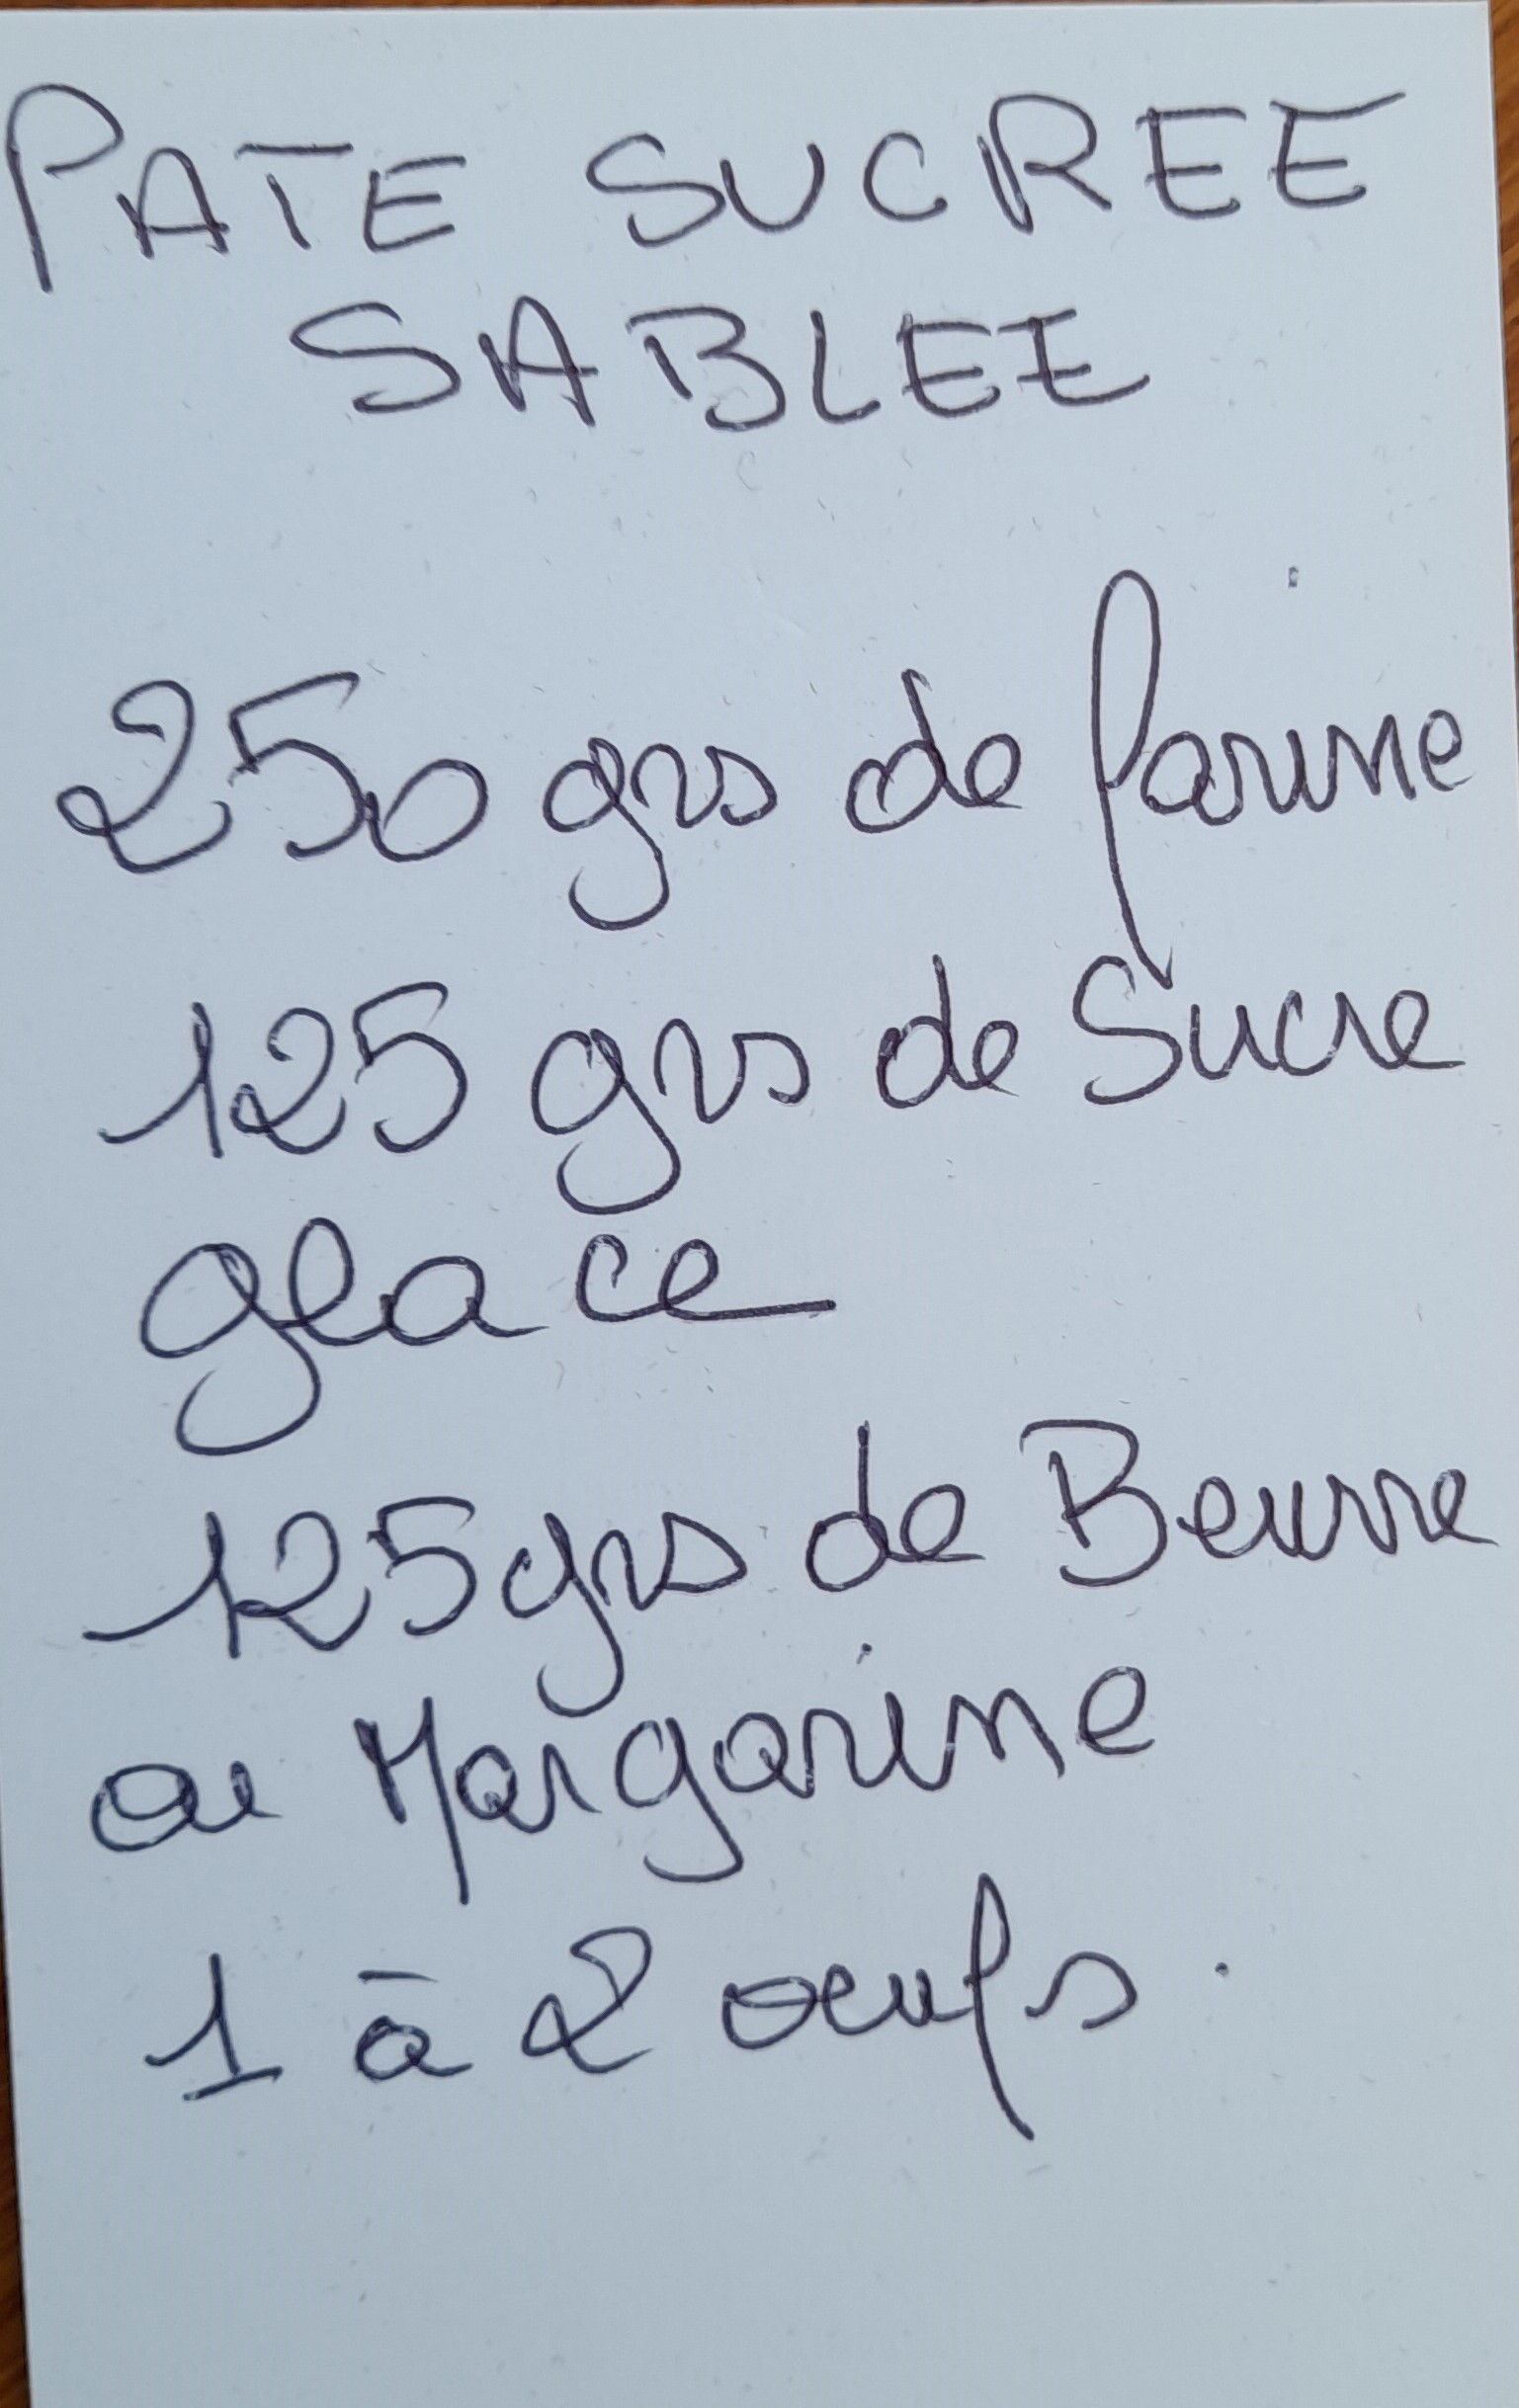 PATE SUCREE
SABLEE
250 grs de farine
125 grs de Sucre
glace
125 grs de Beurre
ou Margarine
1 à 2 oeufs.